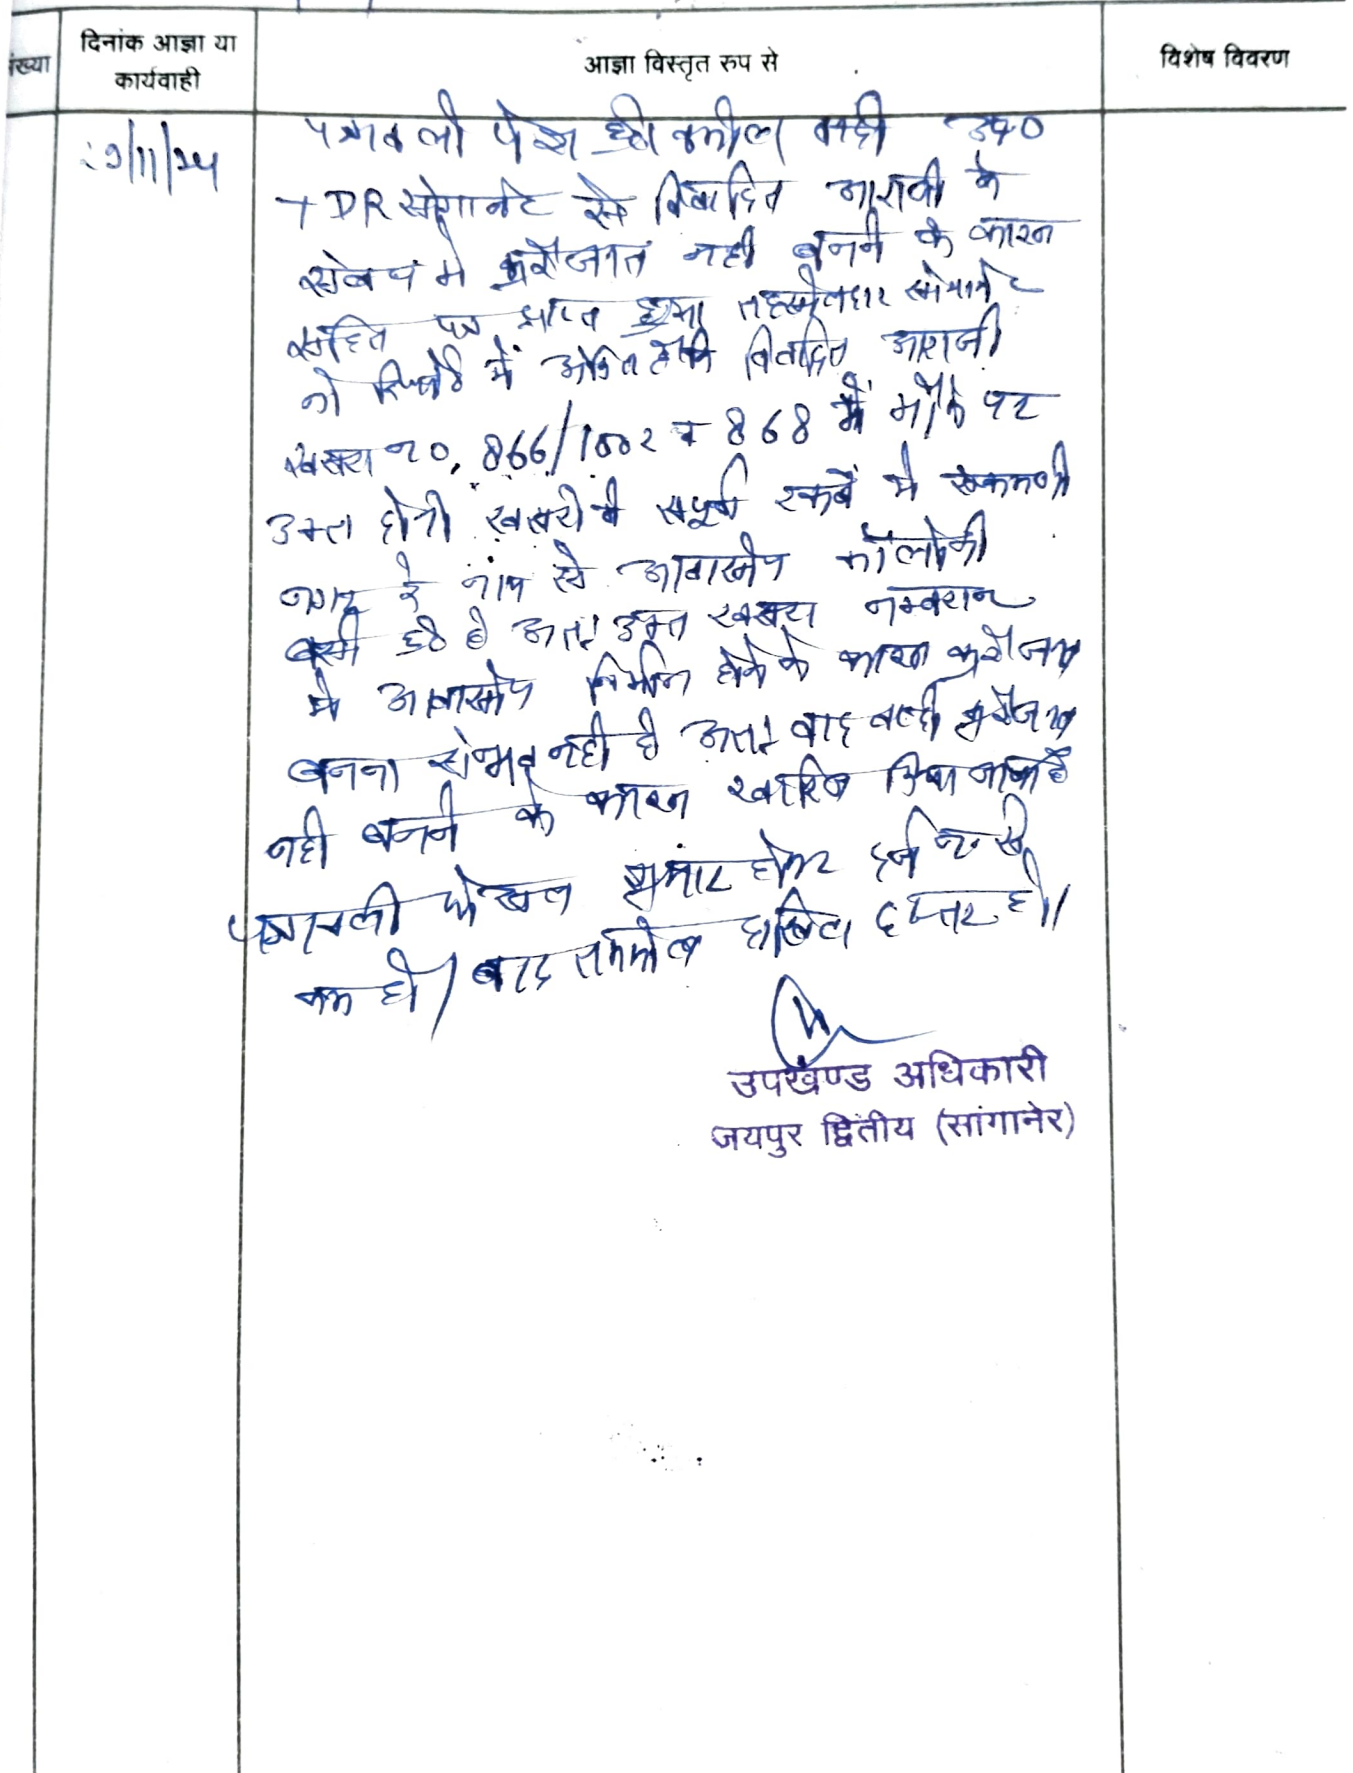 संख्या
दिनांक आज्ञा या
कार्यवाही
आज्ञा विस्तृत रुप से
विशेष विवरण
/11/24
पत्रावली पेश हुई वकील वादी उप०
TDR सांगानेर से विवादित आराजी के
संबंध में कुर्रेजात नही बनने के कारन
सहित पत्र प्राप्त हुआ तहसीलदार सांगानेर
ने रिपोर्ट में अंकित है कि विवादित आराजी
खसरा न०. 866/1002 व 868 में मौके पर
उक्त दोनो खसरो के सपूर्ण रकबें में रूकमणी
नगर के नाम से आवासीय कॉलोनी
बसी हुई है अतः उक्त खसरा नम्बरान
मे आवासीय निर्माण होने के कारण कुर्रेजात
बनना संम्भव नही है अतः वाद वादी कुर्रेजात
नही बनने के कारन खारिज किया जाता है
पत्रावली फैसल शुमार होकर दर्ज न० से
कम हो। बाद तकमील दाखिल दफ्तर हो।
उपखण्ड अधिकारी
जयपुर द्वितीय (सांगानेर)